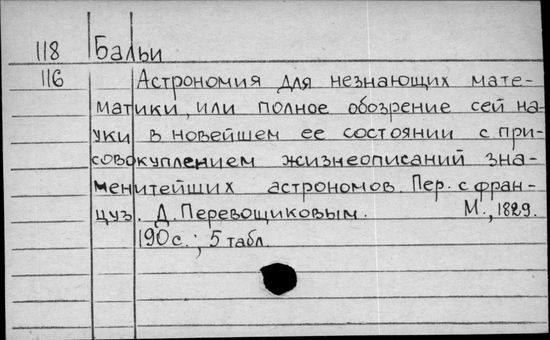 118 Бальи
116 Астрономия для незнающих мате-
матики, или полное обозрение сей на-
уки в новейшем ее состоянии с при-
совокуплением жизнеописаний зна-
менитейших астрономов. Пер. с фран-
цуз. Д. Перевощиковым. М., 1829.
190 с.; 5 табл.